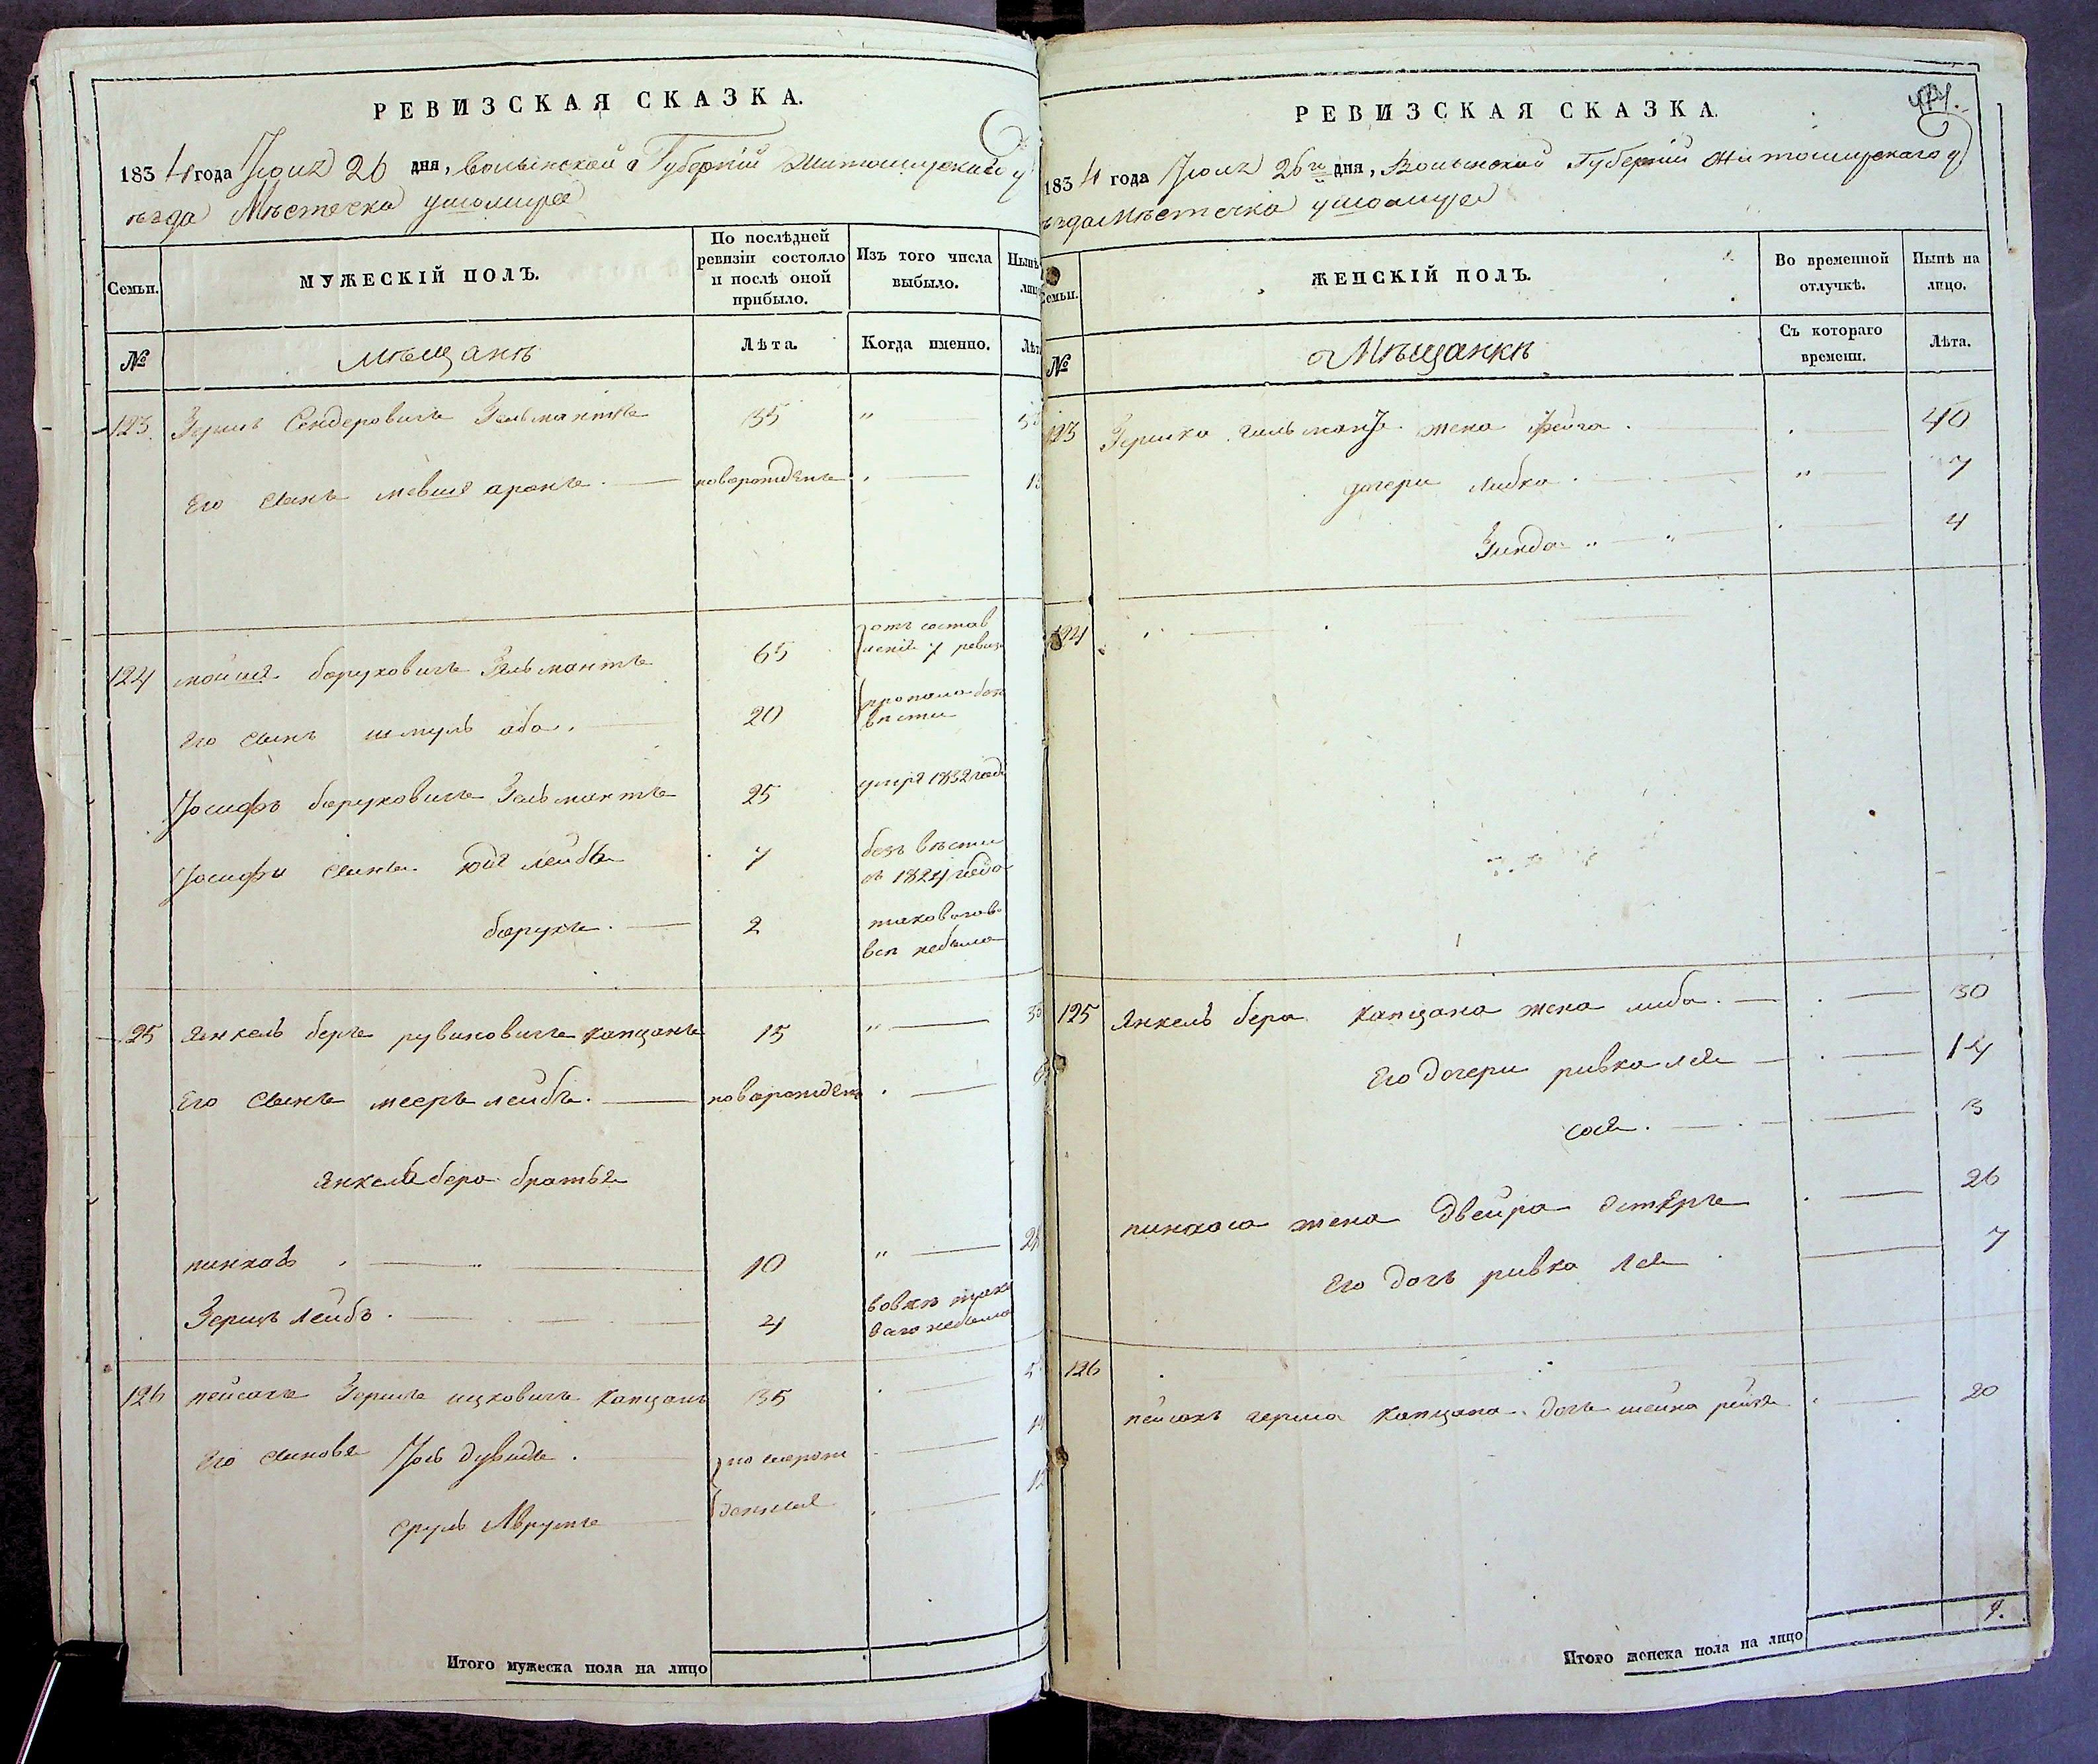 РЕВИЗСКАЯ СКАЗКА.
1834 года Іюля 26 дня, Волынской Губерніи Житомирскаго у
ѣзда Мѣстечка Ушомира
Семьи. МУЖЕСКІЙ ПОЛЪ. По послѣдней ревизіи состояло и послѣ оной прибыло. Изъ того числа выбыло. Нынѣ
№ Мѣщанѣ Лѣта. Когда именно.
123. Зершъ Сендеровичъ Зельмантъ 35 "
Его сынъ мевша аронъ новорожденъ
124 мошка боруховичъ Зельмантъ 65 отъ состав
ленія 7 ревиз
Его сынъ шмуль аба 20 пропало безъ
вѣсти
Іосифъ боруховичъ Зельмантъ 25 умре 1832 года
Іосифа сынъ лейба 7 безъ вѣсти
съ 1824 года
борухъ 2 таковаго во
все небыло
125 Янкель беръ рувиновичъ капцанъ 15 "
Его сынъ мееръ лейбъ новорожденъ
янкель бера братья
пинхасъ 10 "
Зершъ лейбъ 4 вовсе тако
ваго небыло
126 пейсахъ Зершъ ицковичъ капцанъ 35
Его сыновья Іось дувидъ новорож
сруль Аврумъ денныя
Итого мужеска пола на лицо
РЕВИЗСКАЯ СКАЗКА.
1834 года Іюля 26го дня, Волынской Губерніи Житомирскаго у
ѣзда Мѣстечка Ушомира
Семьи. ЖЕНСКІЙ ПОЛЪ. Во временной отлучкѣ. Нынѣ на лицо.
№ Мѣщанкѣ Съ котораго времени. Лѣта.
123 Гершка гильманта жена фейга 40
дочери либка " 7
Зинда 4
124
125 Янкель бера капцана жена либа 30
Его дочери ривка лея 14
сося 3
пинхаса жена двейра эстеръ 26
Его дочь ривка лея 7
126
пейсахъ герша капцана дочь шейна рейзя 20
Итого женска пола на лицо 9.